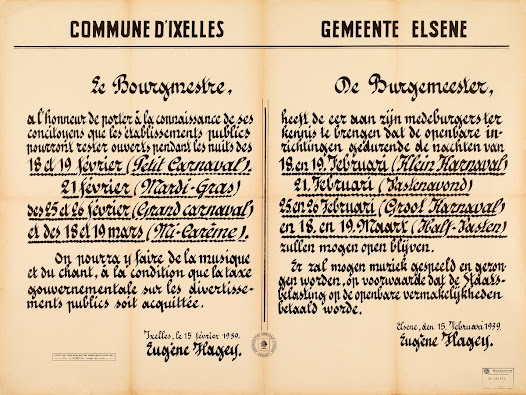 COMMUNE D'IXELLES
Le Bourgmestre,
a l'honneur de porter à la connaissance de ses
concitoyens que les établissements publics
pourront rester ouverts pendant les nuits des
18 et 19 février (Petit Carnaval).
21 février (Mardi-Gras)
des 25 et 26 février (Grand carnaval)
et des 18 et 19 mars (Mi-Carême).
On pourra y faire de la musique
et du chant, à la condition que la taxe
gouvernementale sur les divertisse-
ments publics soit acquittée.
Ixelles, le 15 février 1939.
Eugène Flagey.
GEMEENTE ELSENE
De Burgemeester,
heeft de eer aan zijn medeburgers ter
kennis te brengen dat de openbare in-
richtingen gedurende de nachten van
18 en 19 Februari (Klein Karnaval)
21 Februari (Vastenavond)
25 en 26 Februari (Groot Karnaval)
en 18 en 19 Maart (Half-Vasten)
zullen mogen open blijven.
Er zal mogen muziek gespeeld en gezon-
gen worden, op voorwaarde dat de Staats-
belasting op de openbare vermakelijkheden
betaald worde.
Elsene, den 15 Februari 1939.
Eugène Flagey.